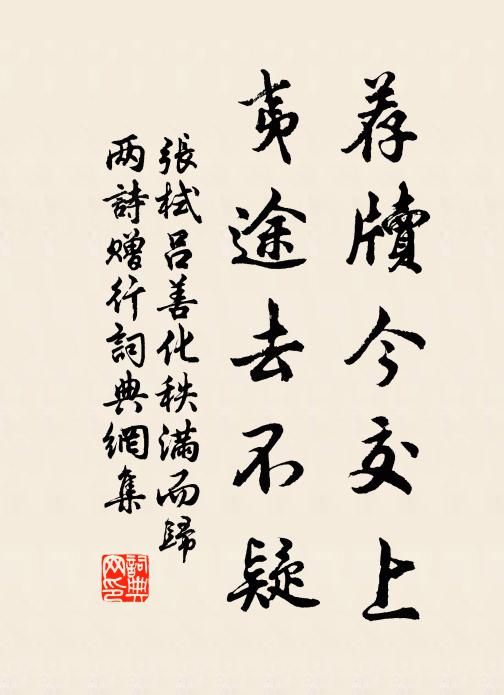 荐牍今交上
夷途去不疑
張栻吕善化秩滿而歸
两詩赠行詞典網集
詞典网印